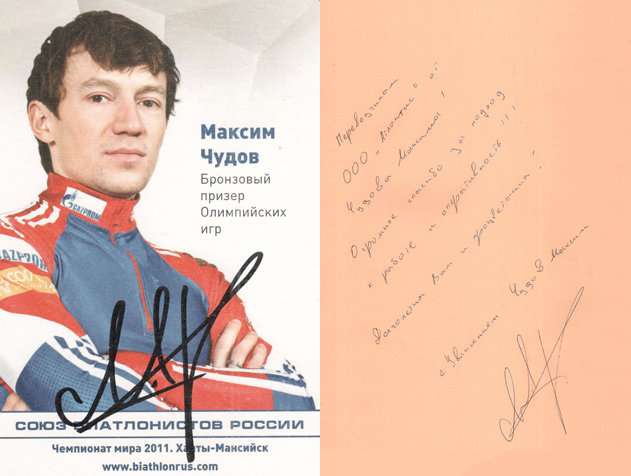 Максим
Чудов
Бронзовый
призер
Олимпийских
игр
GAZPROM
СОЮЗ БИАТЛОНИСТОВ РОССИИ
Чемпионат мира 2011. Ханты-Мансийск
www.biathlonrus.com
ООО
Чудова Максима!
Огромное спасибо за подход
к работе и оперативность!!!
Долголетия Вам и процветания!
с Уважением Чудов Максим